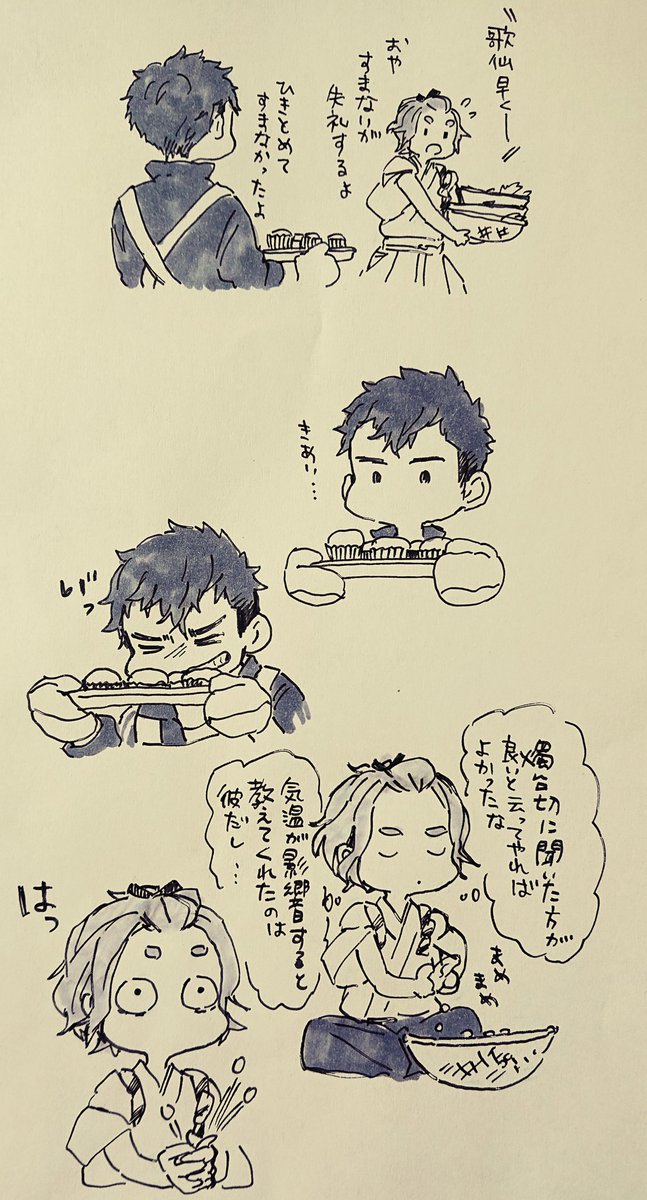 歌仙早くー
おや
すまないが
失礼するよ
ひきとめて
すまなかったよ
きあい…
ｸﾞｯ
燭台切に聞いた方が
良いと云ってやれば
よかったな
気温が影響すると
教えてくれたのは
彼だし…
まめ
まめ
はっ